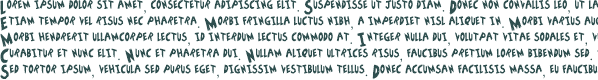 Lorem ipsum dolor sit amet, consectetur adipiscing elit. Suspendisse ut justo diam. Donec non convallis leo, ut la
Etiam tempor vel risus nec pharetra. Morbi fringilla luctus nibh, a imperdiet nisl aliquet in. Morbi varius auc
Morbi hendrerit ullamcorper lectus, id interdum lectus commodo at. Integer nulla dui, volutpat vitae sodales et, v
Curabitur et nunc elit. Nunc et pharetra dui. Nullam aliquet ultrices risus, faucibus pretium lorem bibendum sed.
Sed tortor ipsum, vehicula sed purus eget, dignissim vestibulum tellus. Donec accumsan facilisis massa, eu faucibus